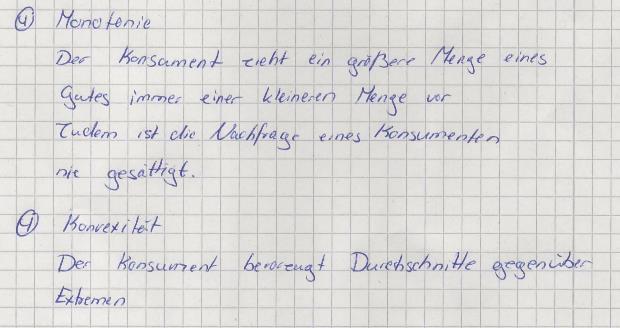 ④ Monotonie
Der Konsument zieht ein größere Menge eines
Gutes immer einer kleineren Menge vor
Zudem ist die Nachfrage eines Konsumenten
nie gesättigt.
④ Konvexität
Der Konsument bevorzugt Durchschnitte gegenüber
Extremen